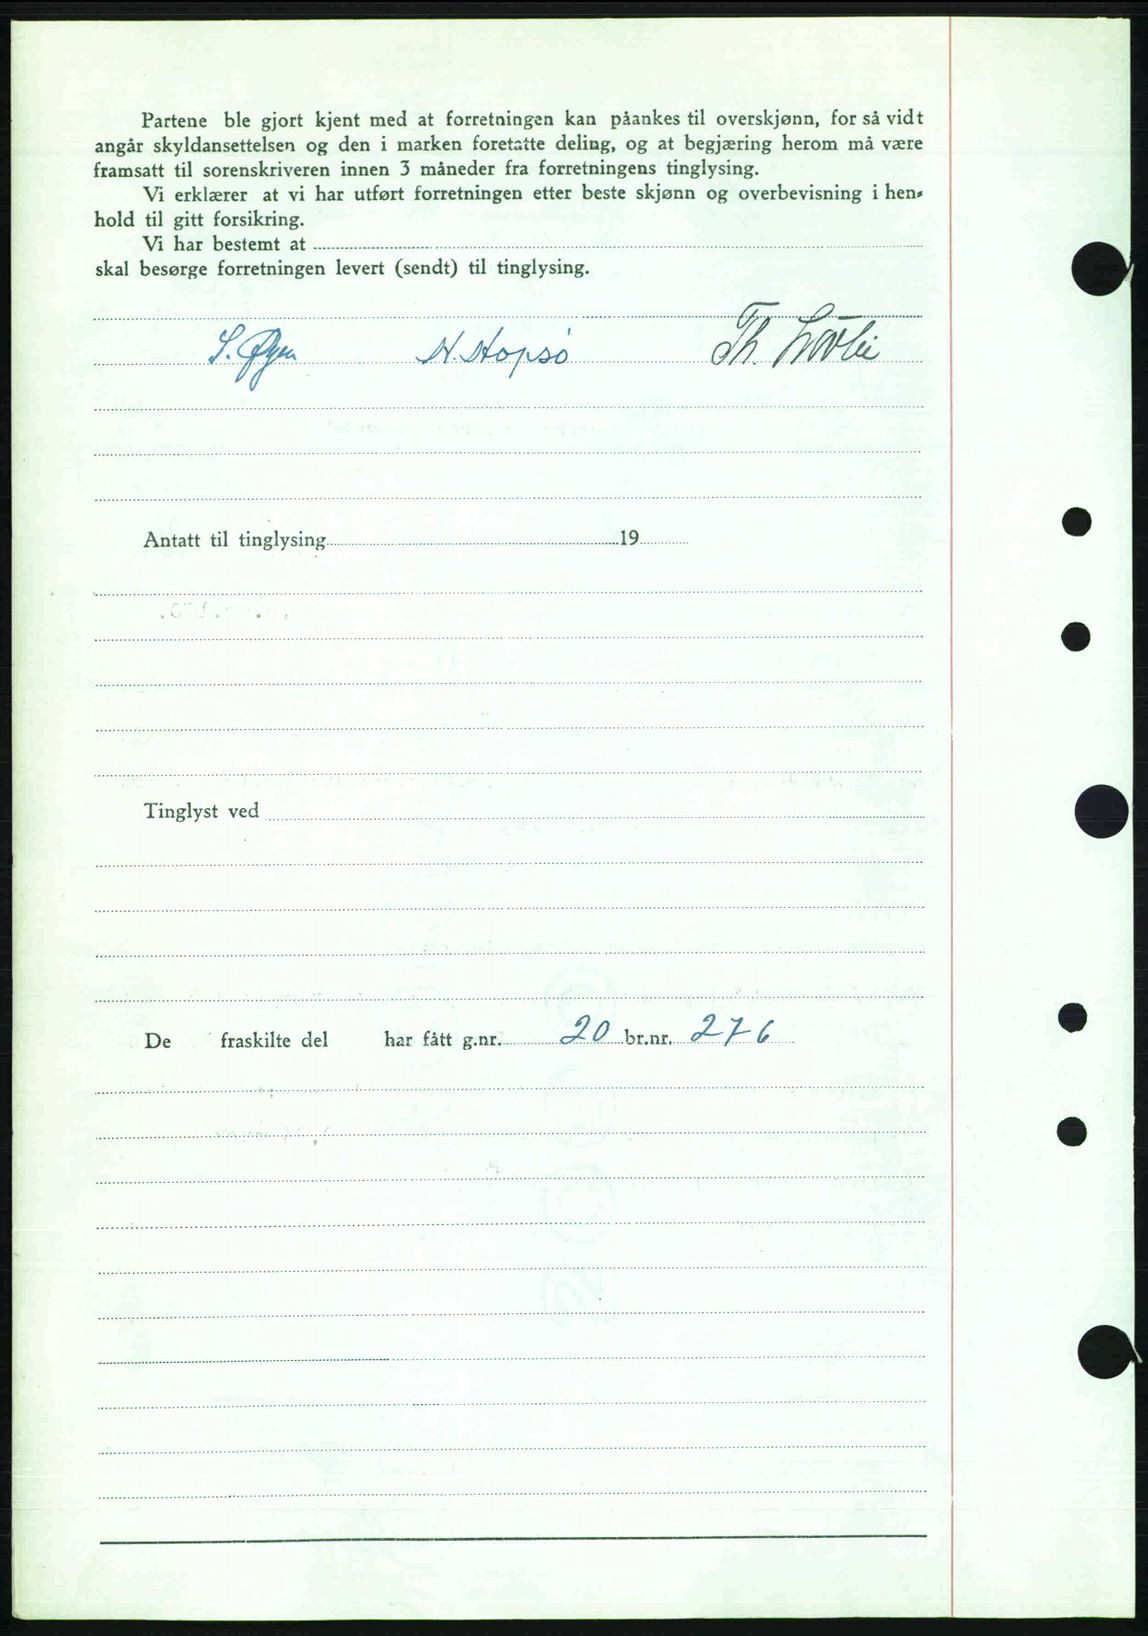 Partene ble gjort kjent med at forretningen kan påankes til overskjønn, for så vidt
angår skyldansettelsen og den i marken foretatte deling, og at begjæring herom må være
framsatt til sorenskriveren innen 3 måneder fra forretningens tinglysing.
Vi erklærer at vi har utført forretningen etter beste skjønn og overbevisning i hen-
hold til gitt forsikring.
Vi har bestemt at
skal besørge forretningen levert (sendt) til tinglysing.
S. Øyen N. Hopsø Th.
Antatt til tinglysing 19
Tinglyst ved
De fraskilte del har fått g.nr. 20 br.nr. 276